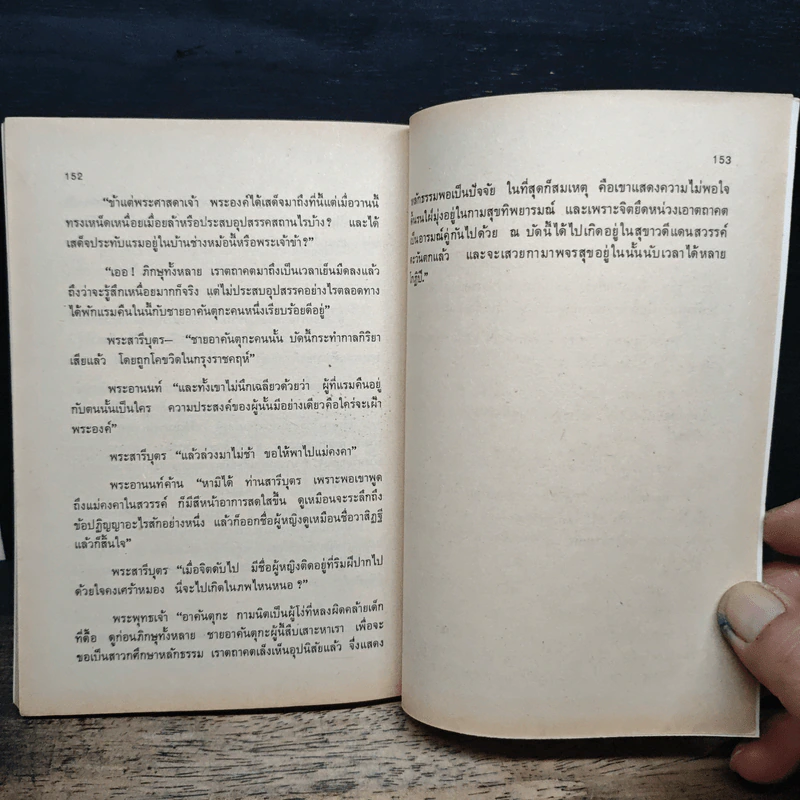 152
“ข้าแต่พระศาสดาเจ้า พระองค์ได้เสด็จมาถึงที่นี้แต่เมื่อวานนี้
ทรงเหน็ดเหนื่อยเมื่อยล้าหรือประสบอุปสรรคสถานไรบ้าง? และได้
เสด็จประทับแรมอยู่ในบ้านช่างหม้อนี้หรือพระเจ้าข้า?”
“เออ! ภิกษุทั้งหลาย เราตถาคตมาถึงเป็นเวลาเย็นมืดลงแล้ว
ถึงว่าจะรู้สึกเหนื่อยมากก็จริง แต่ไม่ประสบอุปสรรคอย่างไรตลอดทาง
ได้พักแรมคืนในนี้กับชายอาคันตุกะคนหนึ่งเรียบร้อยดีอยู่”
พระสารีบุตร— “ชายอาคันตุกะคนนั้น บัดนี้กระทำกาลกิริยา
เสียแล้ว โดยถูกโคขวิดในกรุงราชคฤห์”
พระอานนท์ “และทั้งเขาไม่นึกเฉลียวด้วยว่า ผู้ที่แรมคืนอยู่
กับตนนั้นเป็นใคร ความประสงค์ของผู้นั้นมีอย่างเดียวคือใคร่จะเฝ้า
พระองค์”
พระสารีบุตร “แล้วล่วงมาไม่ช้า ขอให้พาไปแม่คงคา”
พระอานนท์ค้าน “หามิได้ ท่านสารีบุตร เพราะพอเขาพูด
ถึงแม่คงคาในสวรรค์ ก็มีสีหน้าอาการสดใสขึ้น ดูเหมือนจะระลึกถึง
ข้อปฏิญญาอะไรสักอย่างหนึ่ง แล้วก็ออกชื่อผู้หญิงดูเหมือนชื่อวาสิฏฐี
แล้วก็สิ้นใจ”
พระสารีบุตร “เมื่อจิตดับไป มีชื่อผู้หญิงติดอยู่ที่ริมฝีปากไป
ด้วยใจคงเศร้าหมอง นี่จะไปเกิดในภพไหนหนอ?”
พระพุทธเจ้า “อาคันตุกะ กามนิตเป็นผู้โง่ที่หลงผิดคล้ายเด็ก
ที่ดื้อ ดูก่อนภิกษุทั้งหลาย ชายอาคันตุกะผู้นี้สืบเสาะหาเรา เพื่อจะ
ขอเป็นสาวกศึกษาหลักธรรม เราตถาคตเล็งเห็นอุปนิสัยแล้ว จึ่งแสดง
153
หลักธรรมพอเป็นปัจจัย ในที่สุดก็สมเหตุ คือเขาแสดงความไม่พอใจ
ใฝ่มุ่งอยู่ในกามสุขทิพยารมณ์ และเพราะจิตยึดหน่วงเอาตถาคต
เป็นอารมณ์คู่กันไปด้วย ณ บัดนี้ได้ไปเกิดอยู่ในสุขาวดีแดนสวรรค์
ตะวันตกแล้ว และจะเสวยกามาพจรสุขอยู่ในนั้นนับเวลาได้หลาย
โกฏิปี.”